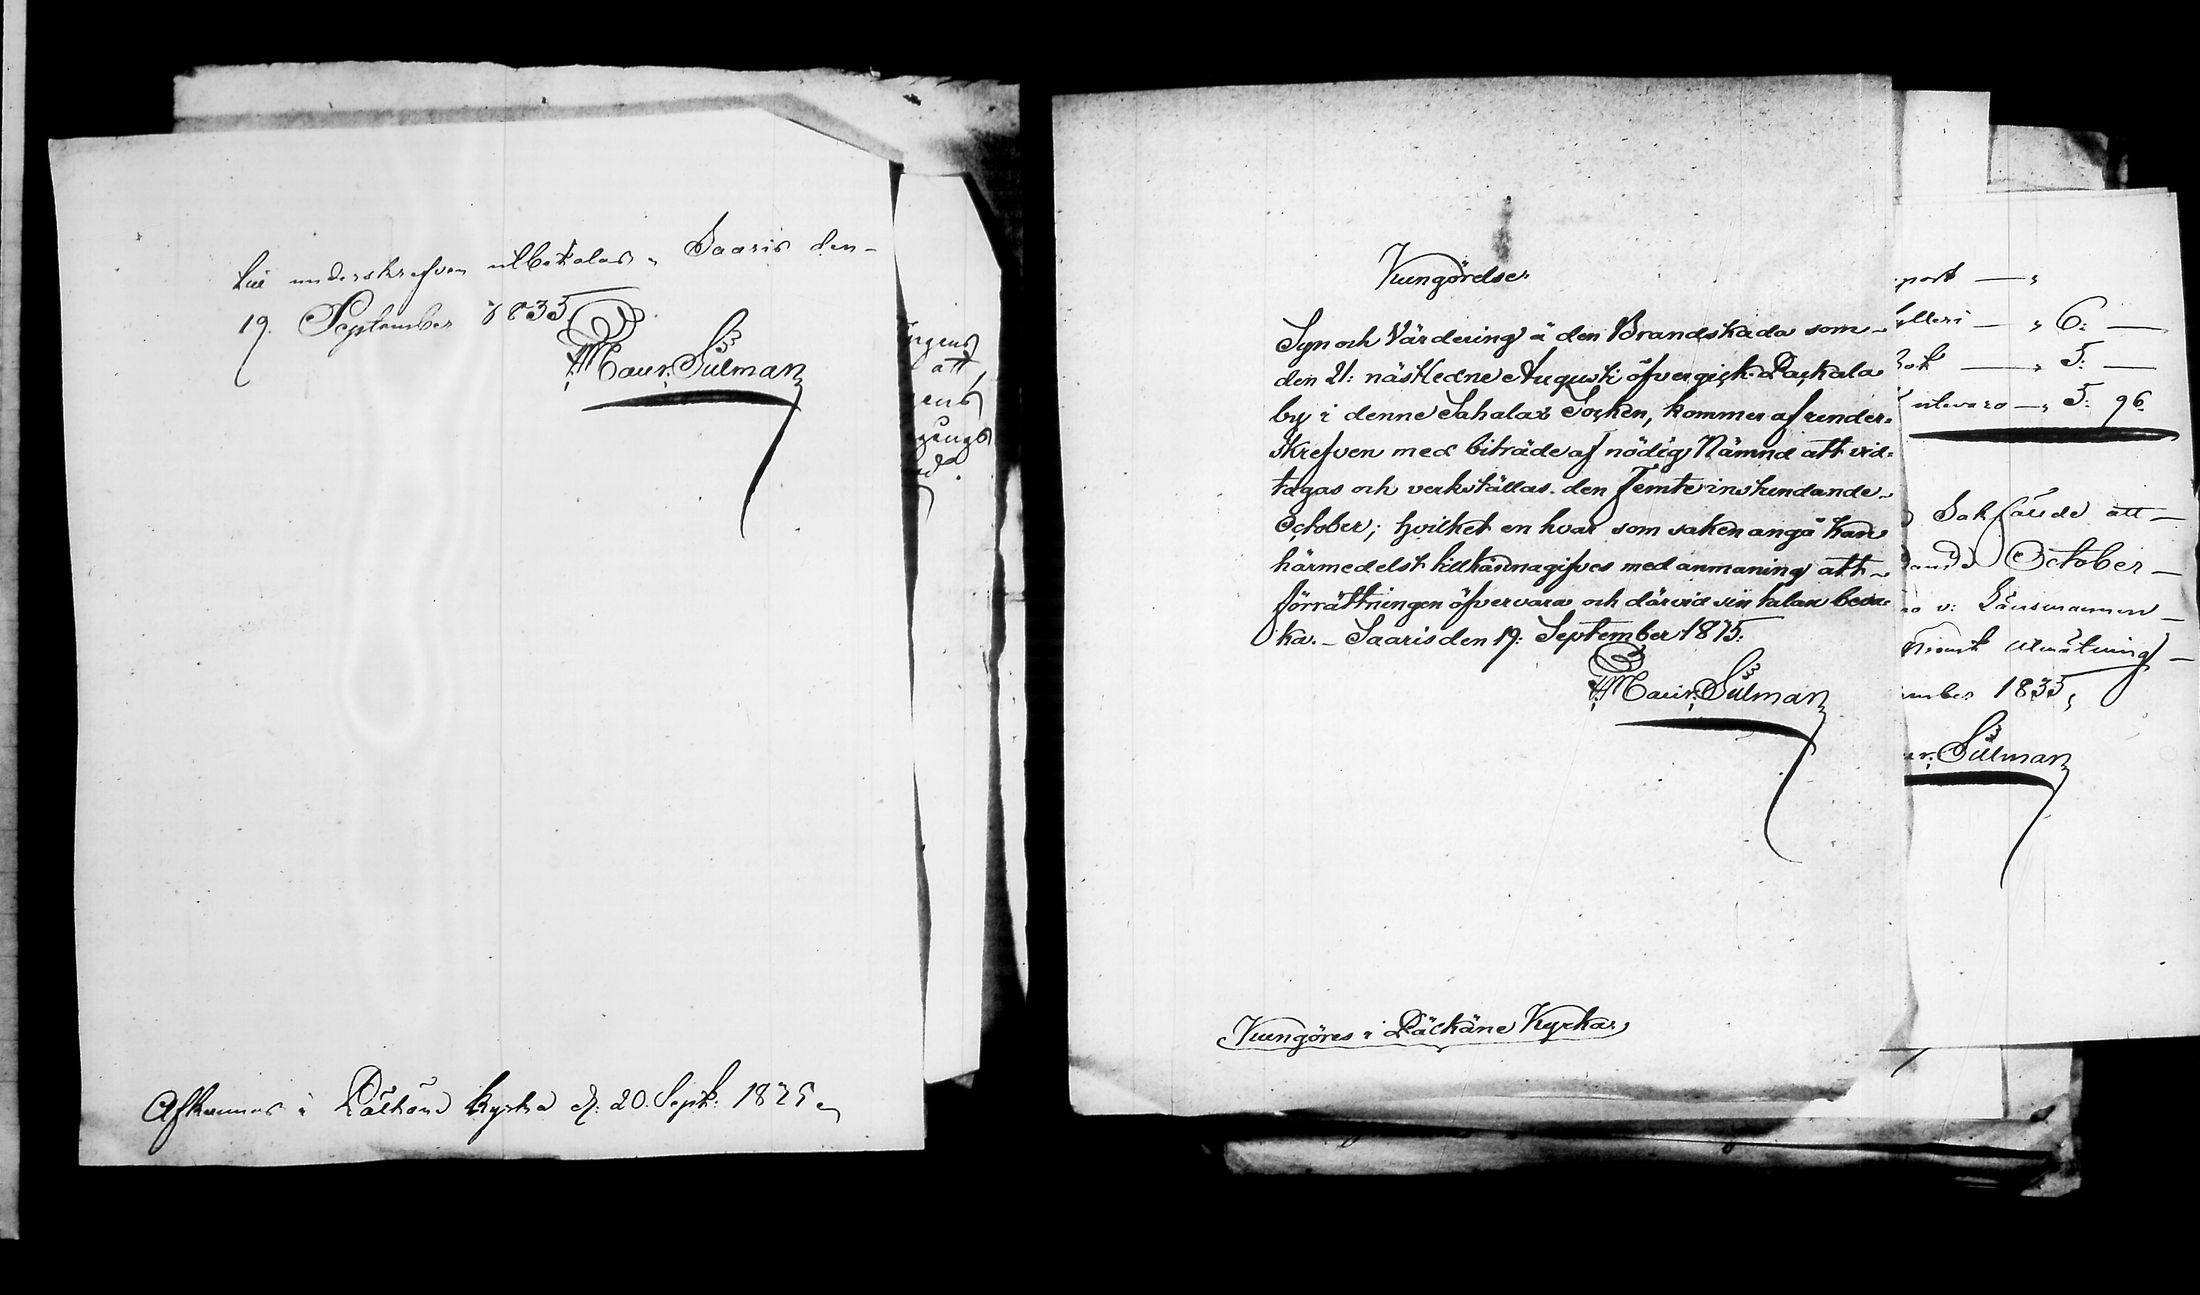 till underskrefven utbetalas. Saaris den
19. September 1835.
Maur. Sulman
Afkunnas i Pälkäne kyrka d. 20. Sept. 1835
att
Kungörelse
Syn och Värdering å den Brandskada som
den 21: nästledne Augusti öfvergick Packala
by i denne Sahalax Socken, kommer af under-
skrefven med biträde af nödig Nämnd att vid-
tagas och verkställas den Femte instundande
October; hvilket en hvar som saken angå kan
härmedelst tillkännagifves med anmaning att
förrättningen öfvervara och därvid sin talan beva-
ka. - Saaris den 19: September 1835.
Maur. Sulman
Kungöres i Pälkäne Kyrka
port — "
6: —
— " 5: —
— " 5: 96.
Sakfälde att —
October —
v: Länsmannen —
Utmätning —
mber 1835,
ur. Sulman